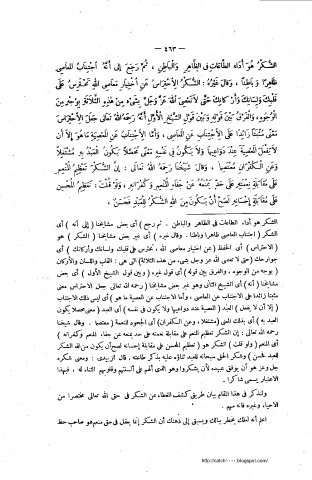 — ٤٦٣ —
الشُّكْرُ هُوَ أَدَاءُ الطَّاعَاتِ فِى الظَّاهِرِ وَالْبَاطِنِ ، ثُمَّ رَجَعَ إِلَى أَنَّهُ اجْتِنَابُ الْمَعَاصِى
ظَاهِرًا وَبَاطِنًا ، وَقَالَ غَيْرُهُ : الشُّكْرُ الِاحْتِرَاسُ عَنِ اخْتِيَارِ مَعَاصِى اللهِ تَحْتَرِسُ عَلَى
قَلْبِكَ وَلِسَانِكَ وَأَرْكَانِكَ حَتَّى لَا تَعْصِىَ اللهَ عَزَّ وَجَلَّ بِشَىْءٍ مِنْ هٰذِهِ الثَّلَاثَةِ بِوَجْهٍ مِنَ
الْوُجُوهِ ، وَالْفَرْقُ بَيْنَ قَوْلِهِ وَبَيْنَ قَوْلِ الشَّيْخِ الْأَوَّلِ أَنَّهُ رَحِمَهُ اللهُ تَعَالَى جَعَلَ الِاحْتِرَاسَ
مَعْنًى مُثْبَتًا زَائِدًا عَلَى الِاجْتِنَابِ عَنِ الْمَعَاصِى ، وَأَمَّا الِاجْتِنَابُ عَنِ الْمَعْصِيَةِ مَا هُوَ إِلَّا أَنْ
لَا يَفْعَلَ الْمَعْصِيَةَ عِنْدَ دَوَاعِيهَا وَلَا يَكُونَ فِى نَفْسِهِ مَعْنًى مُحَصَّلًا يَكُونُ الْعَبْدُ بِهِ مُشْتَغِلًا
وَعَنِ الْكُفْرَانِ مُعْتَصِمًا ، وَقَالَ شَيْخُنَا رَحِمَهُ اللهُ تَعَالَى : إِنَّ الشُّكْرَ تَعْظِيمُ الْمُنْعِمِ
عَلَى مُقَابَلَةِ نِعْمَتِهِ عَلَى حَدٍّ يَمْنَعُهُ عَنْ جَفَاءِ الْمُنْعِمِ وَكُفْرَانِهِ ، وَلَوْ قُلْتَ : تَعْظِيمُ الْمُحْسِنِ
عَلَى مُقَابَلَةِ إِحْسَانِهِ لَصَحَّ أَنْ يَكُونَ مِنَ اللهِ الشُّكْرُ لِلْعَبْدِ فَحَسَنٌ ،
الشكر هو أداء الطاعات فى الظاهر والباطن . ثم رجع ) أى بعض مشايخنا ( إلى أنه ) أى
الشكر ( اجتناب المعاصى ظاهرا وباطنا . وقال غيره ) أى غير بعض مشايخنا ( الشكر ) هو
( الاحتراس ) أى الحفظ ( عن اختيار معاصى الله ، تحترس على قلبك ولسانك وأركانك ) أى
جوارحك ( حتى لا تعصى الله عز وجل بشىء من هذه الثلاثة ) التى هى : القلب واللسان والأركان
( بوجه من الوجوه . والفرق بين قوله ) أى قول غيره ( وبين قول الشيخ الأول ) أى بعض
مشايخنا ( أنه ) أى الشيخ الثانى وهو غير بعض مشايخنا ( رحمه الله تعالى جعل الاحتراس معنى
مثبتا زائدا على الاجتناب عن المعاصى . وأما الاجتناب عن المعصية ما هو ) أى ليس ذلك الاجتناب
( إلا أن لا يفعل ) العبد ( المعصية عند دواعيها ولا يكون فى نفسه ) أى العبد ( معنى محصلا يكون
العبد به ) أى بذلك المعنى ( مشتغلا ، وعن الكفران ) أى الجحود للنعمة ( معتصما . وقال شيخنا
رحمه الله تعالى : إن الشكر تعظيم المنعم على مقابلة نعمته على حد يمنعه عن جفاء المنعم وكفرانه )
أى المنعم ( ولو قلت ) الشكر هو ( تعظيم المحسن على مقابلة إحسانه لصح أن يكون من الله الشكر
للعبد فحسن ) وشكر الحق سبحانه للعبد ثناؤه عليه بذكر طاعته . قال الزبيدى : ومعنى شكره
جل وعز هو أن يوفق عبيده لأن يشكروا وهو الذى ألهم على ألسنتهم وقلوبهم الثناء له ، فبهذا
الاعتبار يسمى شاكرا .
ولنذكر فى هذا المقام بيان طريق كشف الغطاء عن الشكر فى حق الله تعالى مختصرا من
الاحياء وغيره فانه مهم .
اعلم أنه لعلك يخطر ببالك ويسبق إلى ذهنك أن الشكر إنما يعقل فى حق منعم هو صاحب حظ